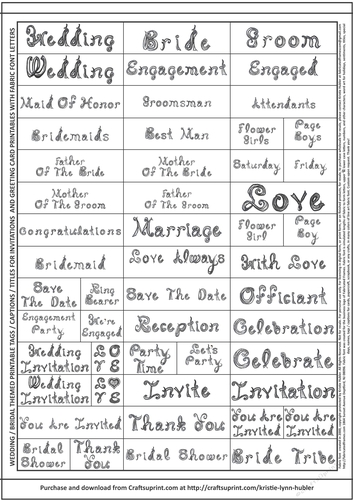 Wedding Bride Groom
Wedding Engagement Engaged
Maid Of Honor Groomsman Attendants
Bridemaids Best Man Flower Girls Page Boys
Father Of The Bride Mother Of The Bride Saturday Friday
Mother Of The Groom Father Of The Groom Love
Congratulations Marriage Flower Girl Page Boy
Bridemaid Love Always With Love
Save The Date Ring Bearer Save The Date Officiant
Engagement Party We're Engaged Reception Celebration
Wedding Invitation LOVE Party Time Let's Party Celebrate
Wedding Invitation LOVE Invite Invitation
You Are Invited Thank You You Are Invited You Are Invited
Bridal Shower Thank You Bridal Shower Bride Tribe
WEDDING / BRIDAL THEMED PRINTABLE TAGS / CAPTIONS / TITLES FOR INVITATIONS AND GREETING CARD PRINTABLES WITH FABRIC FONT LETTERS
Purchase and download from Craftsuprint.com at http://craftsuprint.com/kristie-lynn-hubler